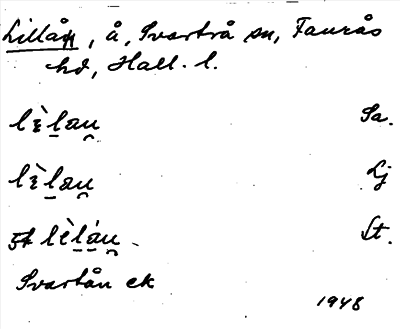 Lillån, å, Svartrå sn, Faurås
hd, Hall. l.
lɛ̀lau̯ Sa.
lɛ̀lau̯ Lj
lèlau̯ St.
Svartån ek
1948